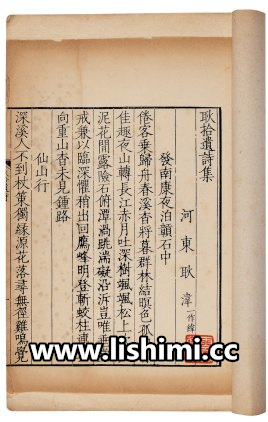 耿拾遺詩集
河東耿湋一作緯
發南康夜泊灨石中
倦客乗歸舟春溪杳將暮群林結暝色孤
佳趣夜山轉長江赤月吐深樹颯颯松上
泥花開露險石俯潭渦跳湍礙沿泝豈唯垂
戒兼以臨深懼稍出回鴈峰明登斬蛟柱連
向重山杳未見鍾路
仙山行
深溪人不到杖策獨緣源花落尋無徑雞鳴覺
www.lishimi.cc